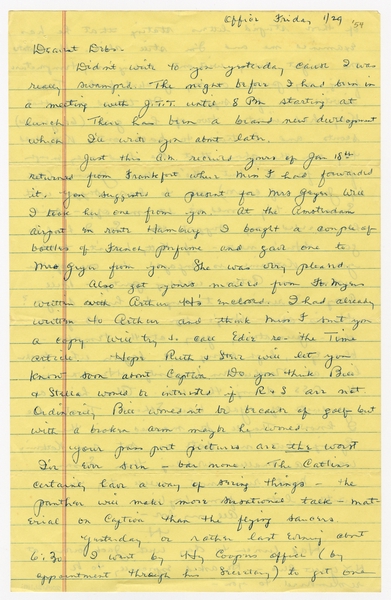 Office Friday 1/29 '54
Dearest Debs-
Didn't write to you yesterday cause I was
really swamped. The night before I had been in
a meeting with J.T.T. until 8 PM starting at
lunch. There has been a brand new development
which I'll write you about later.
Just this A.M. received yours of Jan 18th
returned from Frankfort where Miss F had forwarded
it. You suggested a present for Mrs Geyer. Well
I took her one from you. At the Amsterdam
airport en route Hamburg I bought a couple of
bottles of French perfume and gave one to
Mrs Geyer from you. She was very pleased.
Also got yours mailed from Ft. Myers
written with Arthur H's enclosed. I had already
written to Arthur and think Miss F sent you
a copy. Will try to call Edir re the Time
article. Hope Ruth & Stew will let you
know soon about Captiva. Do you think Bill
& Stella would be interested if R & S are not
Ordinarily Bill wouldn't be because of golf but
with a broken arm maybe he would.
Your pass port pictures are the worst
I've ever seen - bar none. The Catlers
certainly have a way of seeing things - the
panther will make more sensational talk-mat-
erial on Captiva than the flying saucers
Yesterday or rather last evening about
6:30 I went by Hy Coopers office (by
appointment through his Secretary) to get one